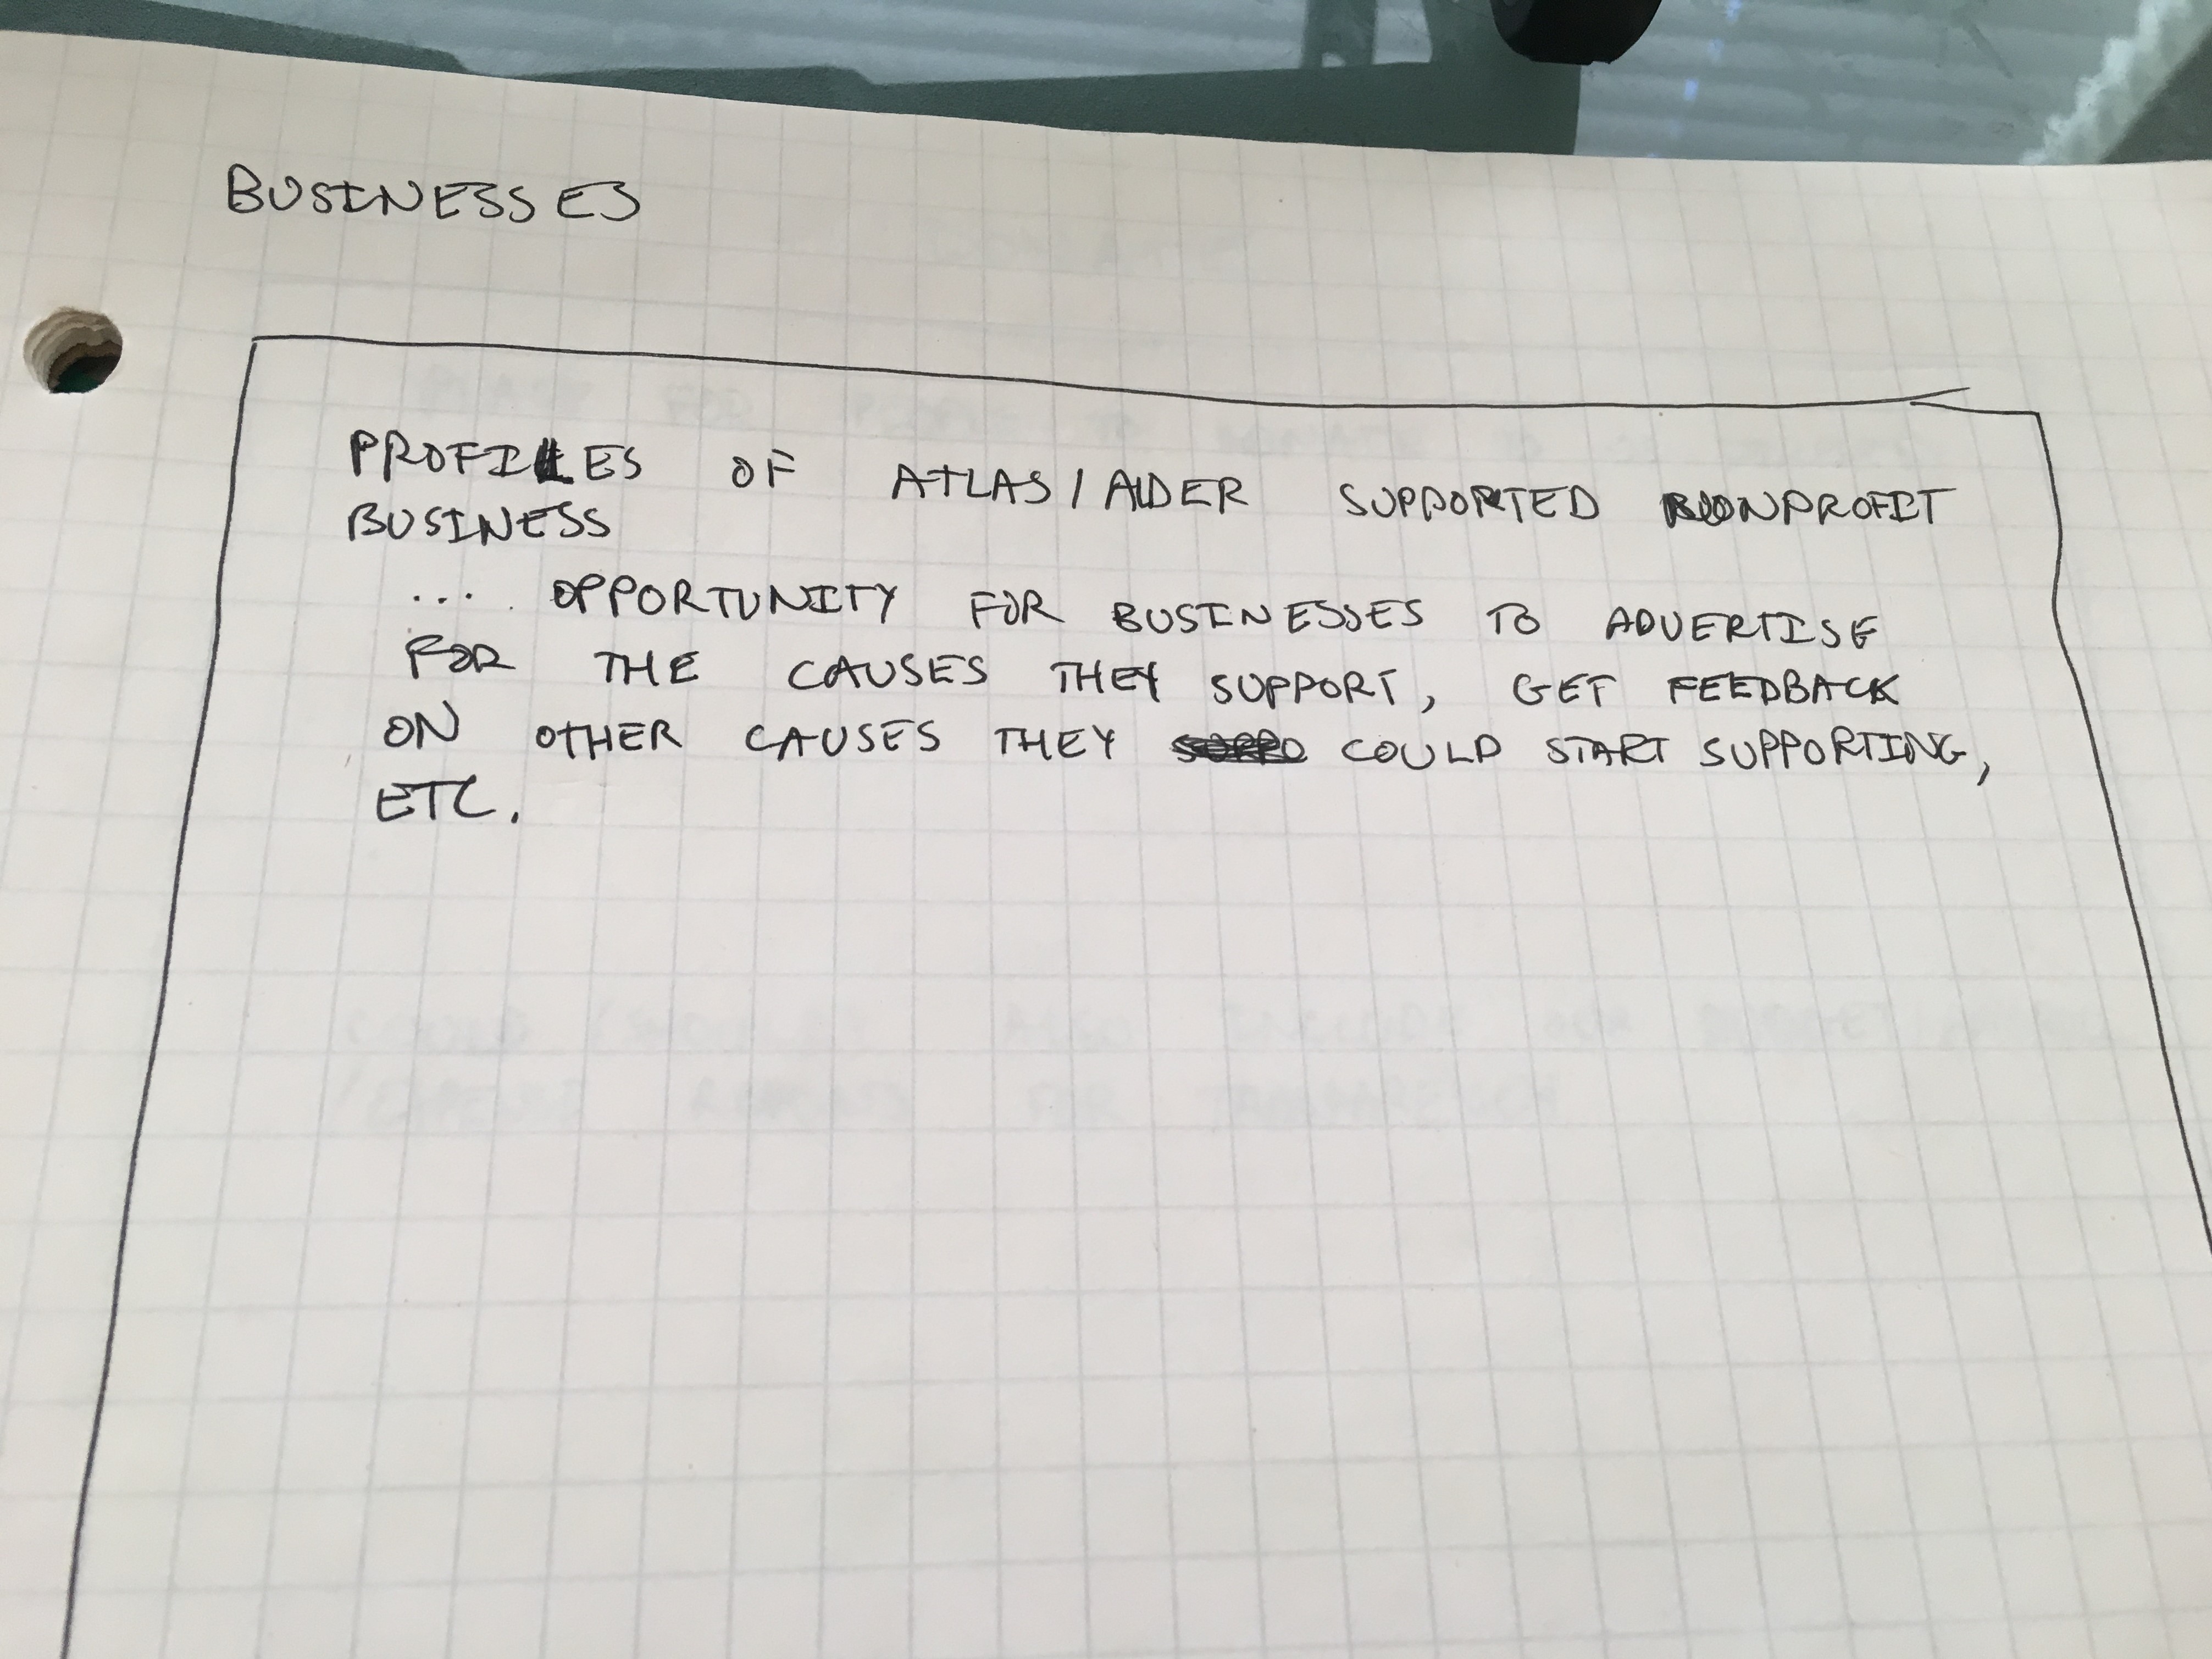 BUSINESSES
PROFILES OF ATLAS/AIDER SUPPORTED NONPROFIT
BUSINESS
... OPPORTUNITY FOR BUSINESSES TO ADVERTISE
FOR THE CAUSES THEY SUPPORT, GET FEEDBACK
ON OTHER CAUSES THEY COULD START SUPPORTING,
ETC.